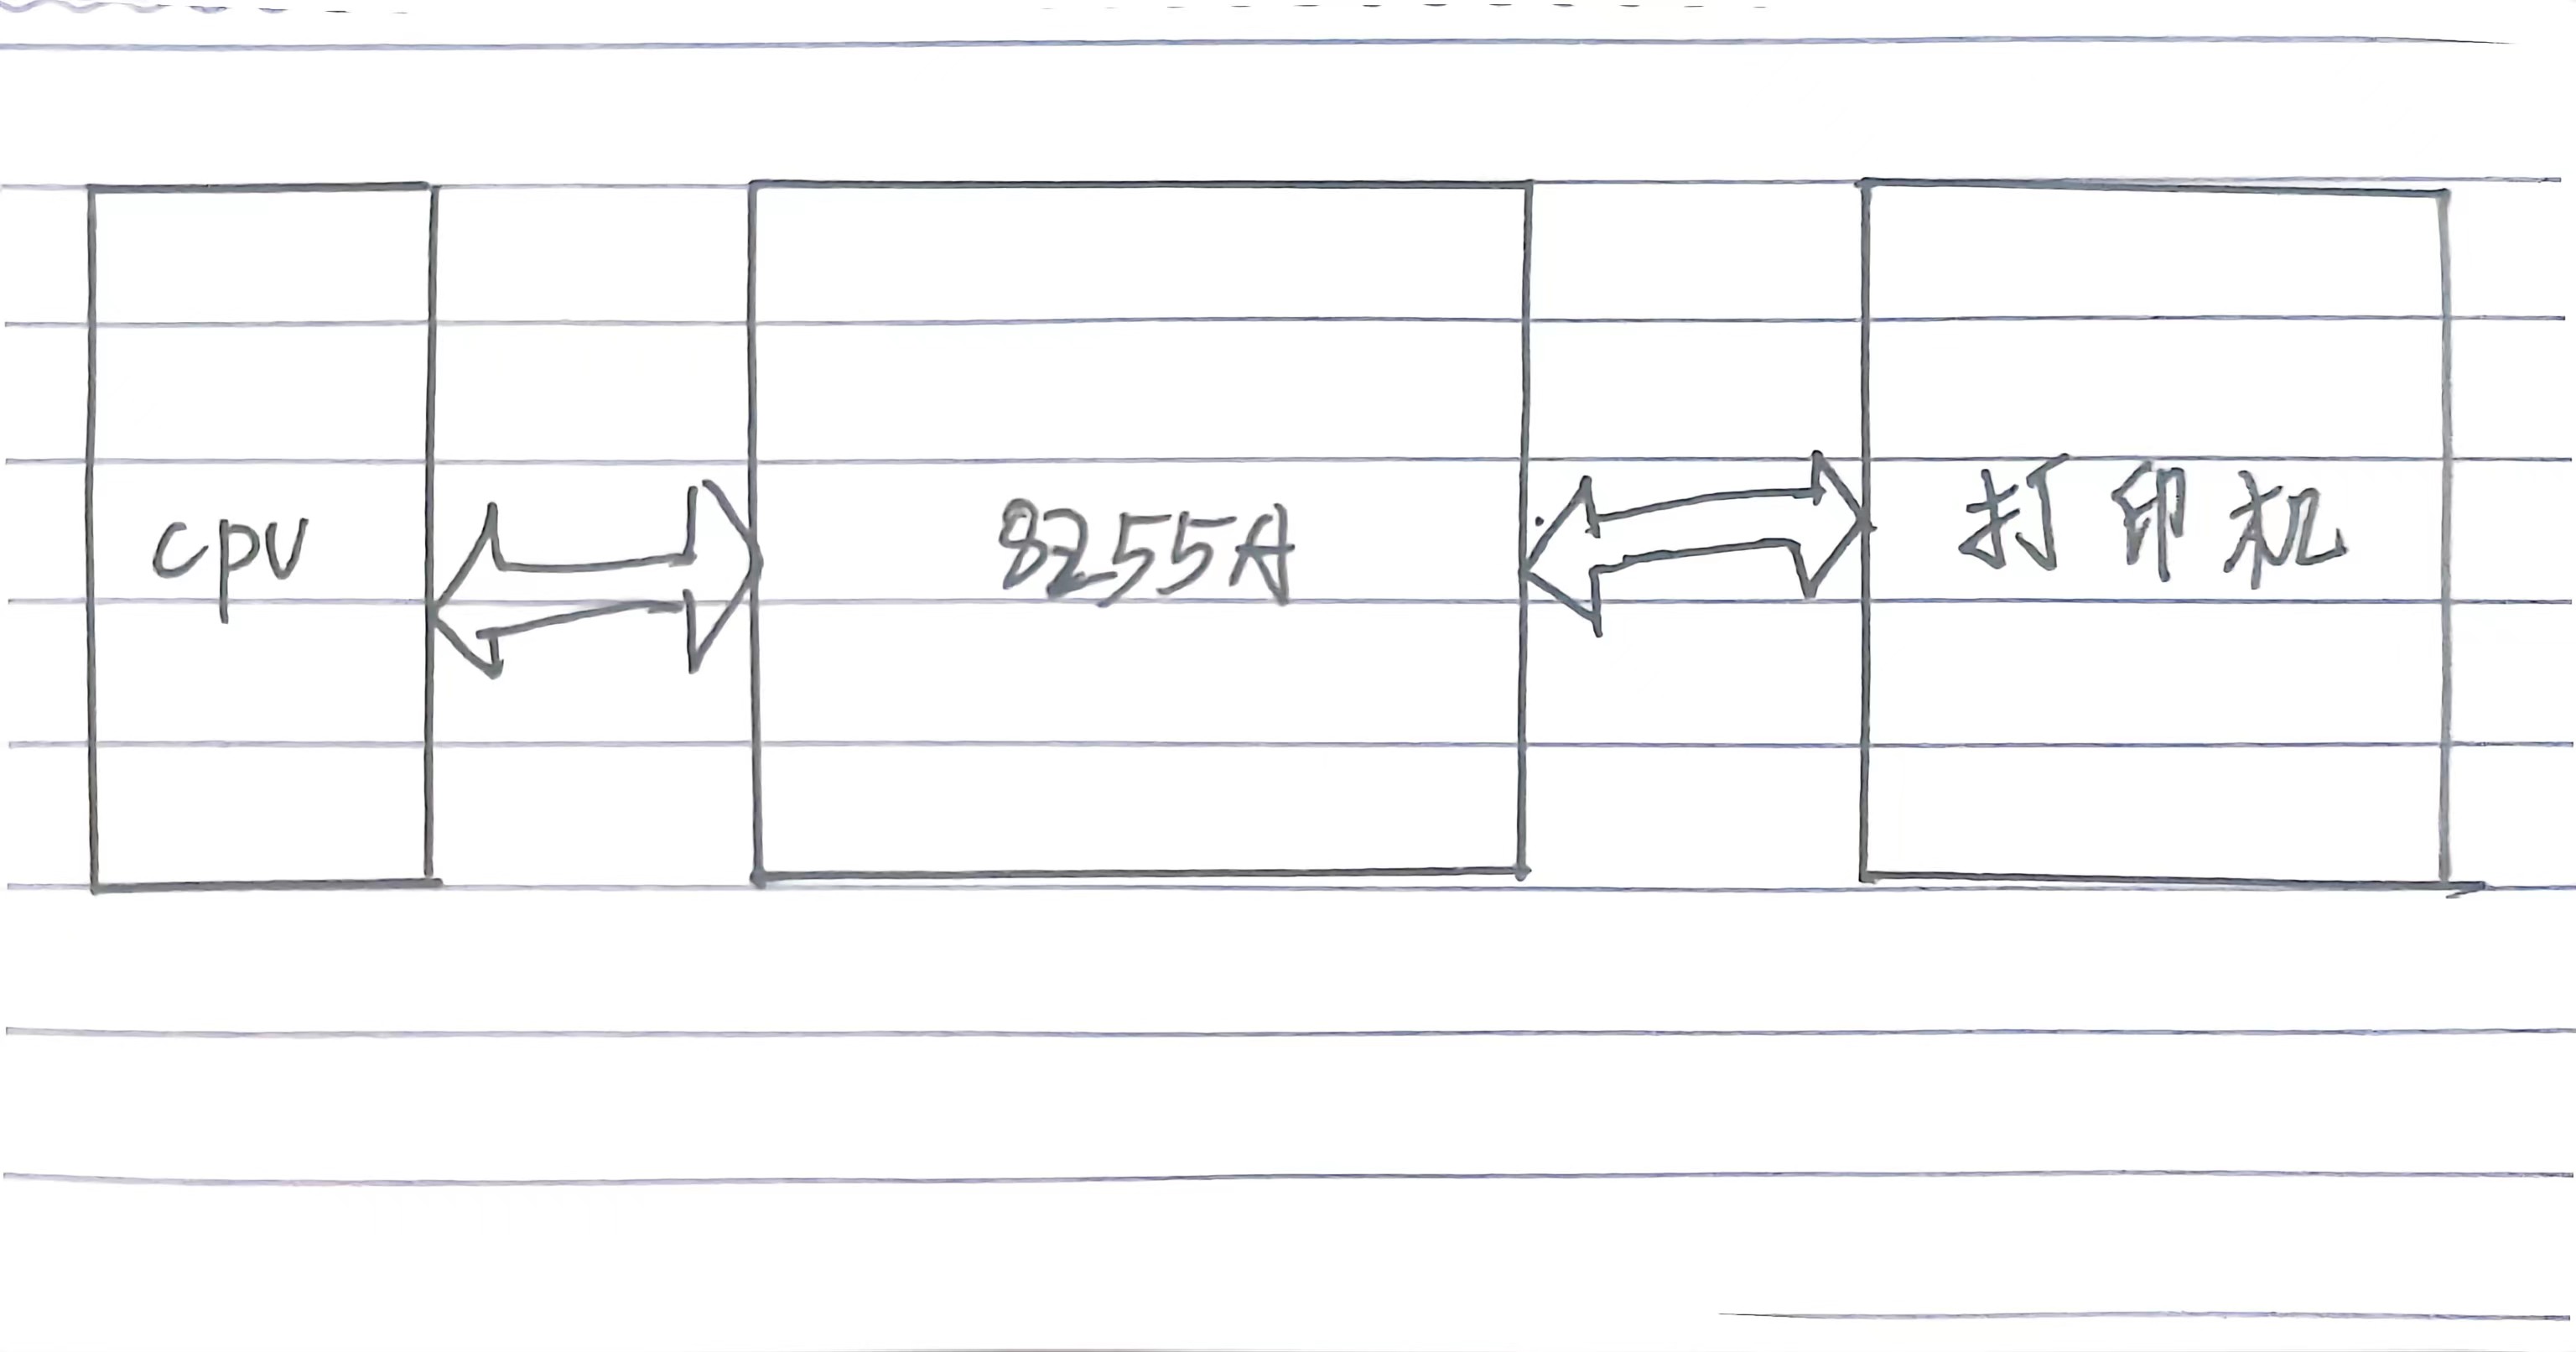 CPU
8255A
打印机